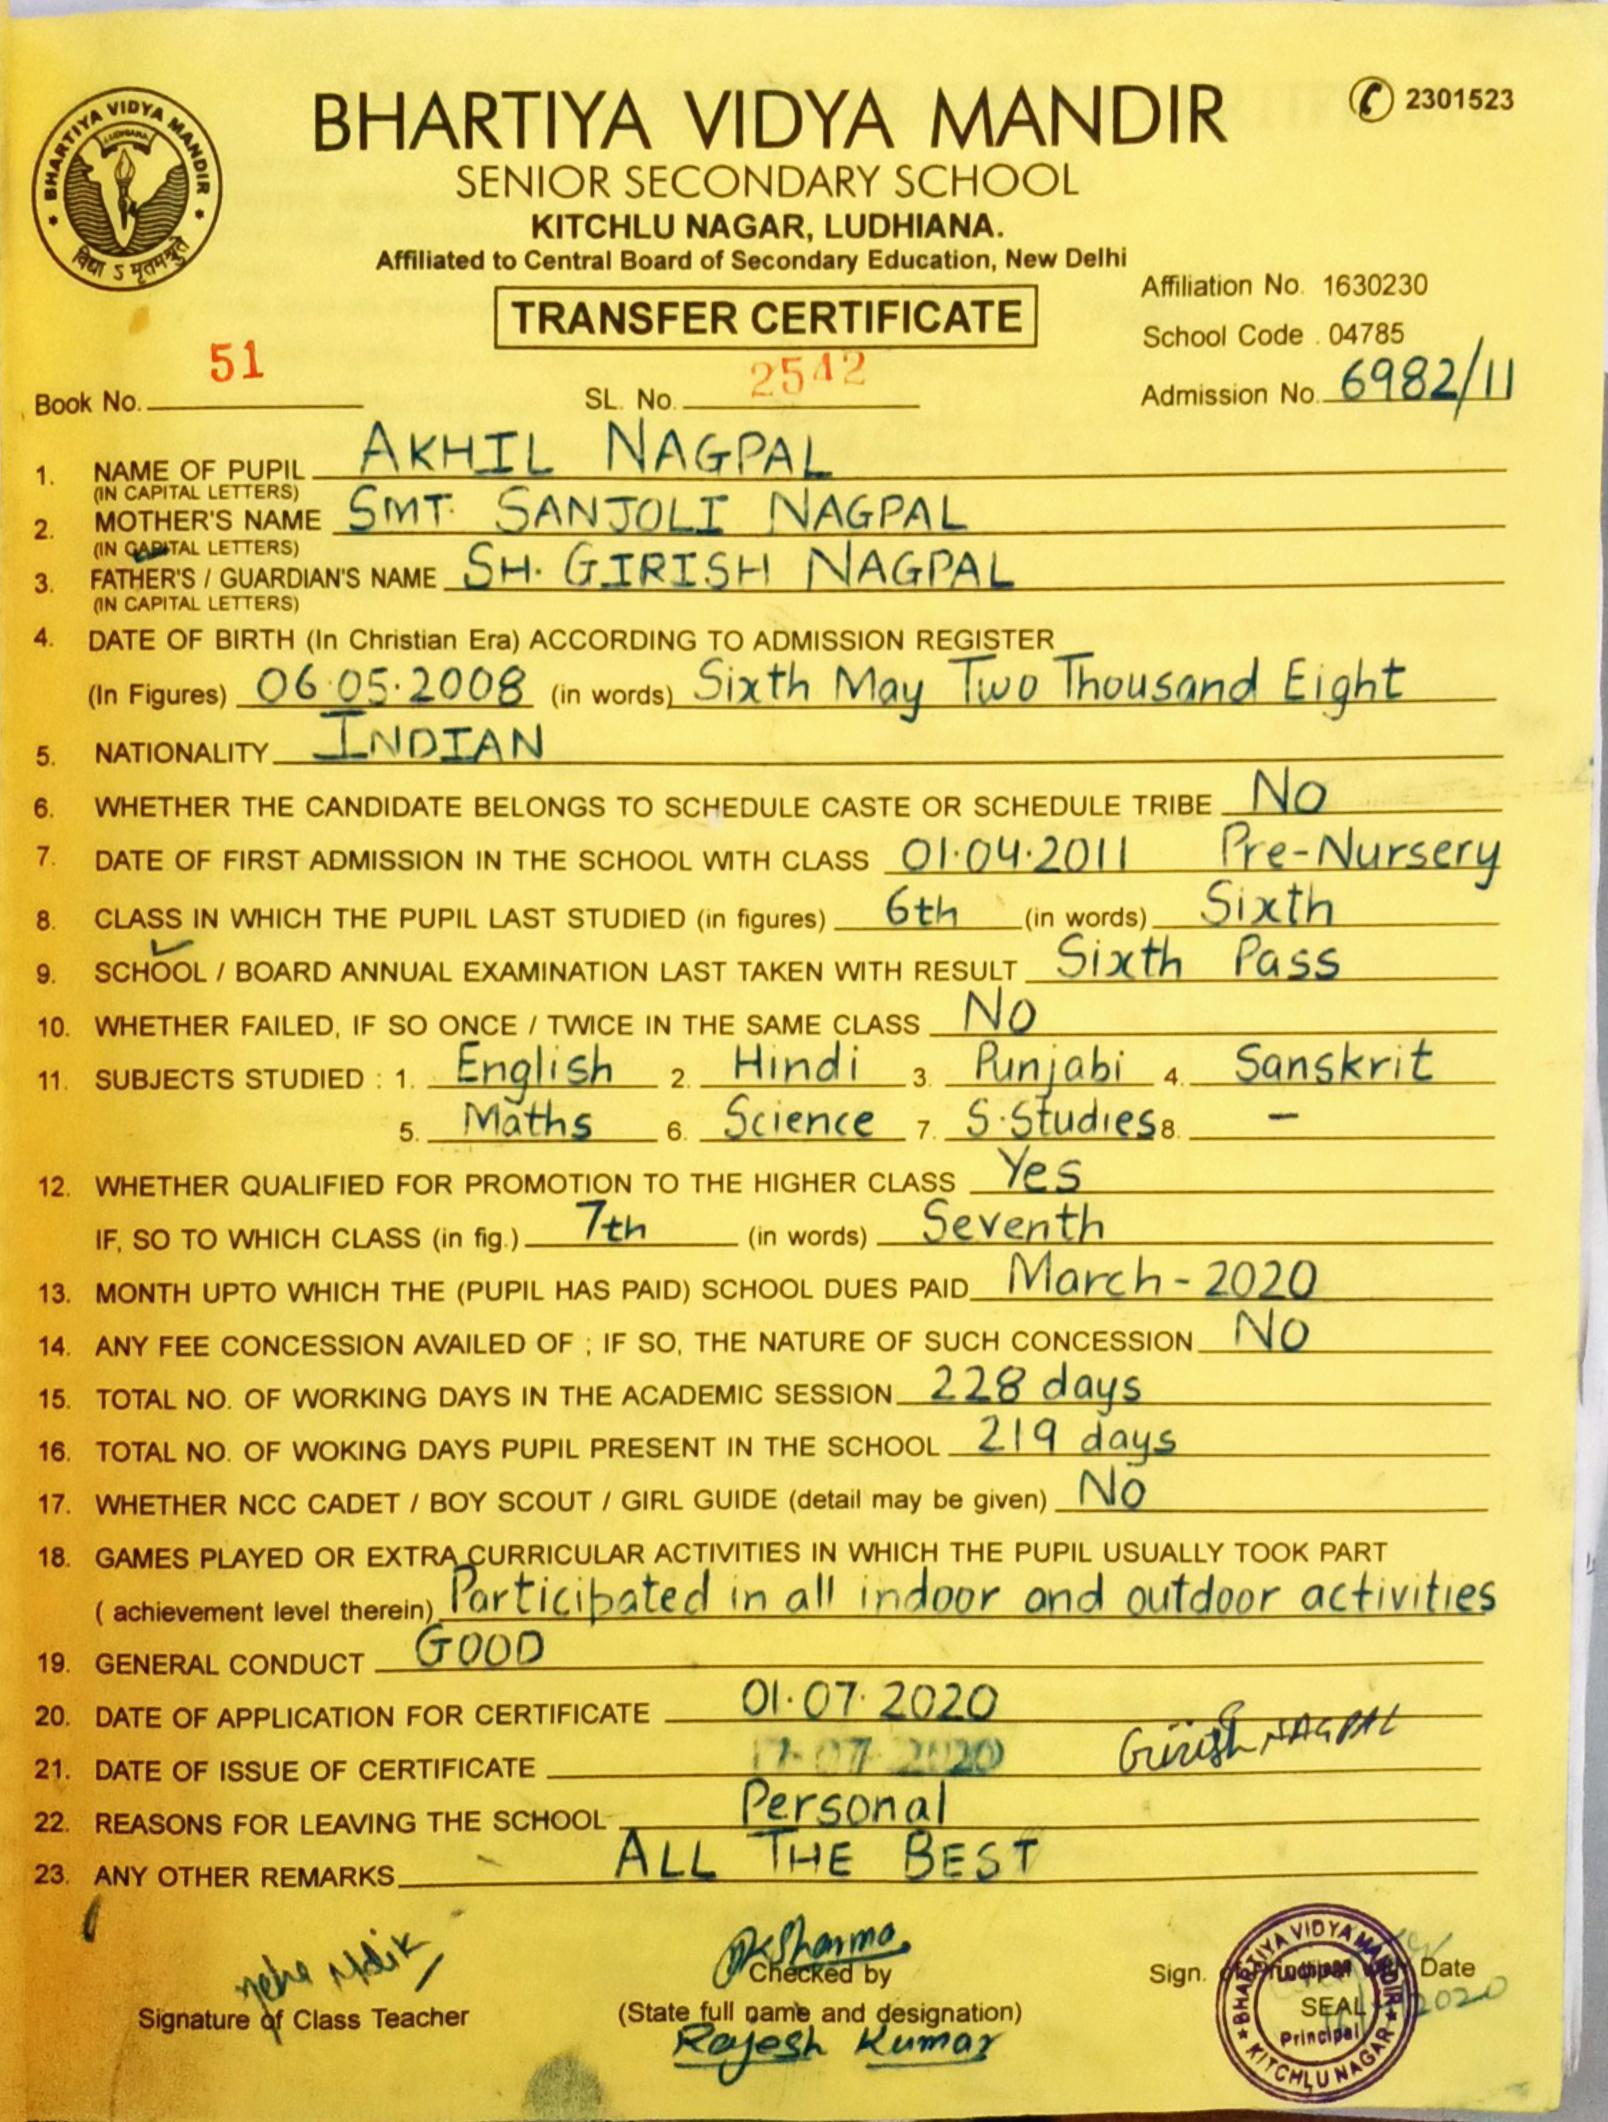 BHARTIYA VIDYA MANDIR
LUDHIANA
विद्या ऽ मृतमश्नुते
BHARTIYA VIDYA MANDIR
2301523
SENIOR SECONDARY SCHOOL
KITCHLU NAGAR, LUDHIANA.
Affiliated to Central Board of Secondary Education, New Delhi
Affiliation No. 1630230
TRANSFER CERTIFICATE
School Code . 04785
Book No. 51 SL. No. 2542 Admission No. 6982/11
1. NAME OF PUPIL AKHIL NAGPAL
(IN CAPITAL LETTERS)
2. MOTHER'S NAME SMT. SANJOLI NAGPAL
(IN CAPITAL LETTERS)
3. FATHER'S / GUARDIAN'S NAME SH. GIRISH NAGPAL
(IN CAPITAL LETTERS)
4. DATE OF BIRTH (In Christian Era) ACCORDING TO ADMISSION REGISTER
(In Figures) 06.05.2008 (in words) Sixth May Two Thousand Eight
5. NATIONALITY INDIAN
6. WHETHER THE CANDIDATE BELONGS TO SCHEDULE CASTE OR SCHEDULE TRIBE No
7. DATE OF FIRST ADMISSION IN THE SCHOOL WITH CLASS 01.04.2011 Pre-Nursery
8. CLASS IN WHICH THE PUPIL LAST STUDIED (in figures) 6th (in words) Sixth
9. SCHOOL / BOARD ANNUAL EXAMINATION LAST TAKEN WITH RESULT Sixth Pass
10. WHETHER FAILED, IF SO ONCE / TWICE IN THE SAME CLASS No
11. SUBJECTS STUDIED : 1. English 2. Hindi 3. Punjabi 4. Sanskrit
5. Maths 6. Science 7. S.Studies 8. -
12. WHETHER QUALIFIED FOR PROMOTION TO THE HIGHER CLASS Yes
IF, SO TO WHICH CLASS (in fig.) 7th (in words) Seventh
13. MONTH UPTO WHICH THE (PUPIL HAS PAID) SCHOOL DUES PAID March - 2020
14. ANY FEE CONCESSION AVAILED OF ; IF SO, THE NATURE OF SUCH CONCESSION No
15. TOTAL NO. OF WORKING DAYS IN THE ACADEMIC SESSION 228 days
16. TOTAL NO. OF WOKING DAYS PUPIL PRESENT IN THE SCHOOL 219 days
17. WHETHER NCC CADET / BOY SCOUT / GIRL GUIDE (detail may be given) No
18. GAMES PLAYED OR EXTRA CURRICULAR ACTIVITIES IN WHICH THE PUPIL USUALLY TOOK PART
( achievement level therein) Participated in all indoor and outdoor activities
19. GENERAL CONDUCT GOOD
20. DATE OF APPLICATION FOR CERTIFICATE 01.07.2020
Girish NAGPAL
21. DATE OF ISSUE OF CERTIFICATE 17-07-2020
22. REASONS FOR LEAVING THE SCHOOL Personal
23. ANY OTHER REMARKS ALL THE BEST
Sharma
Checked by
Sign. of Principal with Date
Signature of Class Teacher
(State full name and designation)
Rajesh Kumar
SEAL 2020
Principal
BHARTIYA VIDYA MANDIR
KITCHLU NAGAR